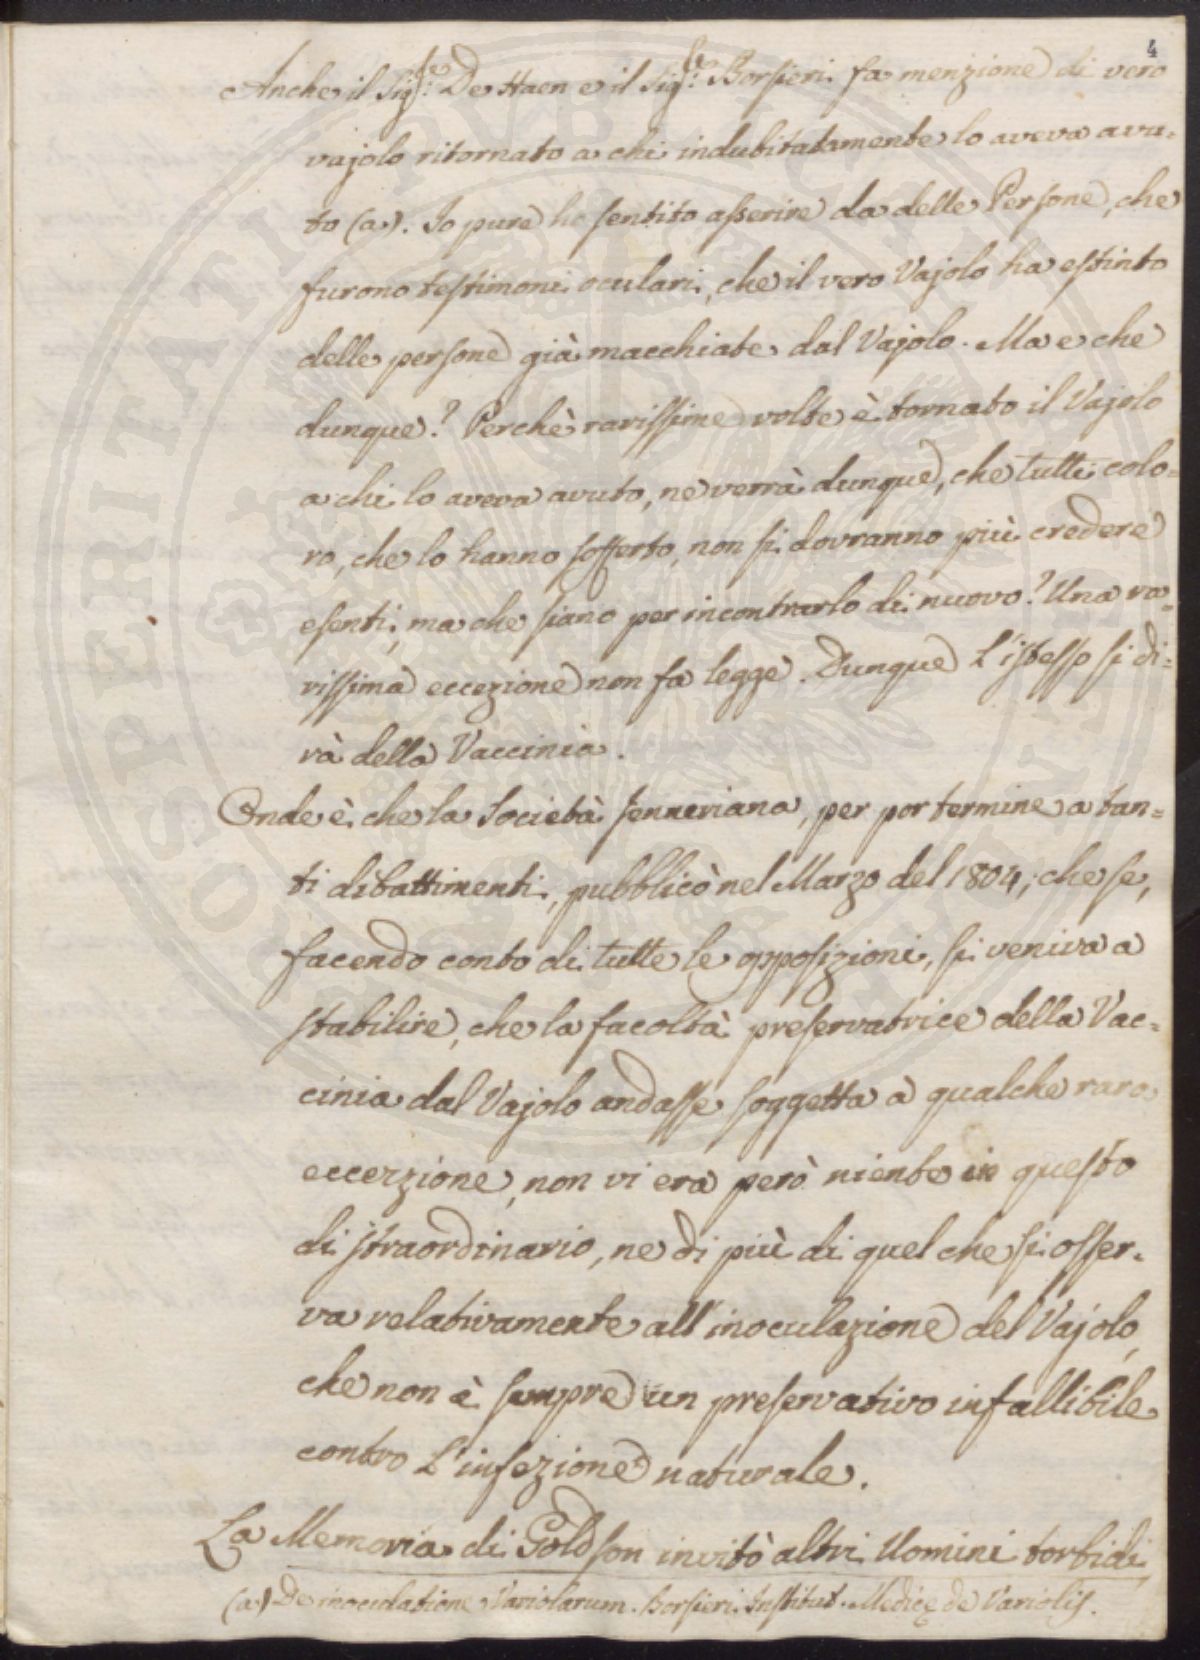 4
Anche il Sig.re De Haen e il Sig.re Borsieri fa menzione di vero
vajolo ritornato a chi indubitatamente lo aveva avu=
to (a). Io pure ho sentito asserire da delle Persone, che
furono testimoni oculari, che il vero Vajolo ha estinto
delle persone già macchiate dal Vajolo. Ma e che
dunque? Perchè rarissime volte è tornato il Vajolo
a chi lo aveva avuto, ne verrà dunque, che tutti colo=
ro, che lo hanno sofferto, non si dovranno più credere
esenti, ma che siano per incontrarlo di nuovo? Una ra=
rissima eccezione non fa legge. Dunque l'istesso si di=
rà della Vaccinia.
Onde è che la Società Jenneriana, per por termine a tan=
ti dibattimenti, pubblicò nel Marzo del 1804; che se,
facendo conto di tutte le opposizioni, si veniva a
stabilire, che la facoltà preservatrice della Vac=
cinia dal Vajolo andasse soggetta a qualche rara
eccezzione, non vi era però niente in questo
di straordinario, ne di più di quel che si osser=
va relativamente all'inoculazione del Vajolo,
che non è sempre un preservativo infallibile
contro l'infezione naturale.
La Memoria di Goldson invitò altri Uomini torbidi
(a) De inoculatione Variolarum. Borsieri Institut. Medicę de Variolis.
PROSPERITATI PVBLICAE